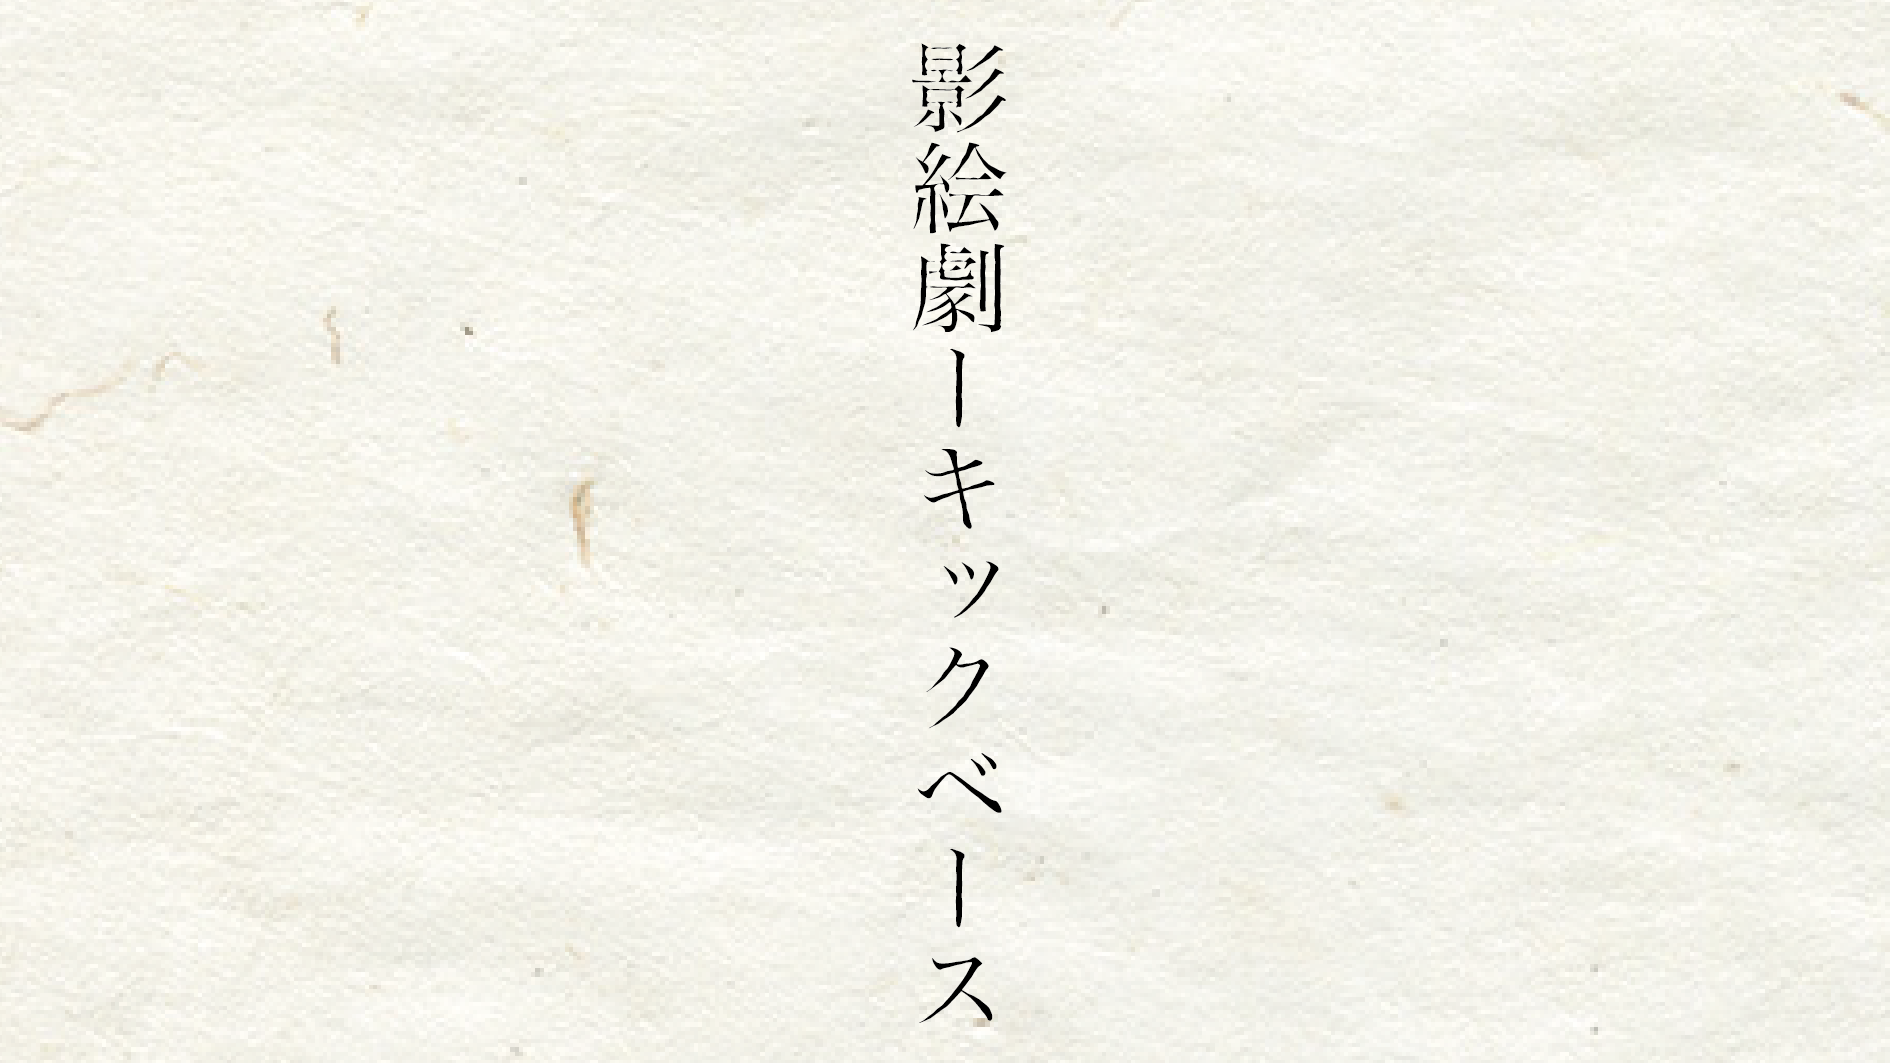 影絵劇ーキックベース